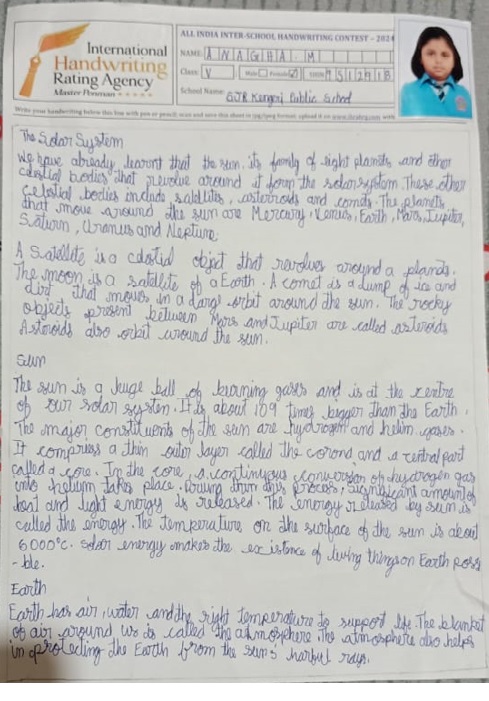 International
Handwriting
Rating Agency
Master Penman
ALL INDIA INTER-SCHOOL HANDWRITING CONTEST - 2024
NAME: ANAGHA. M
Class: V Male Female
School Name: SJR Kengeri Public School
Write your handwriting below this line with pen or pencil, scan and save this sheet in jpg/jpeg format, upload it on
The Solar System
We have already learnt that the sun, its family of eight planets and other
celestial bodies that revolve around it form the solar system. These other
Celestial bodies include satellites, asterroids and comets. The planets
that move around the sun are Mercury, Venus, Earth, Mars, Jupiter,
Saturn, Uranus and Neptune.
A Satellite is a celestial object that revolves around a planets.
The moon is a satellite of a Earth. A comet is a lump of ice and
dirt that moves in a large orbit around the sun. The rocky
objects present between Mars and Jupiter are called asteroids
Asteroids also orbit around the sun.
Sun
The sun is a huge ball of burning gases and is at the centre
of our solar system. It is about 109 times bigger than the Earth.
The major constituents of the sun are hydrogen and helim gases.
It comprises a thin outer layer called the corona and a central part
called a core. In the core, a continuous conversion of hydrogen gas
into helium takes place. During this process, significant amount of
heat and light energy is released. The energy released by sun is
called the energy. The temperature on the surface of the sun is about
6000°C. Solar energy makes the existence of living things on Earth possi
-ble.
Earth
Earth has air, water and the right temperature to support life. The blanket
of air around us is called the atmosphere. The atmosphere also helps
in protecting the Earth from the sun's harful rays.